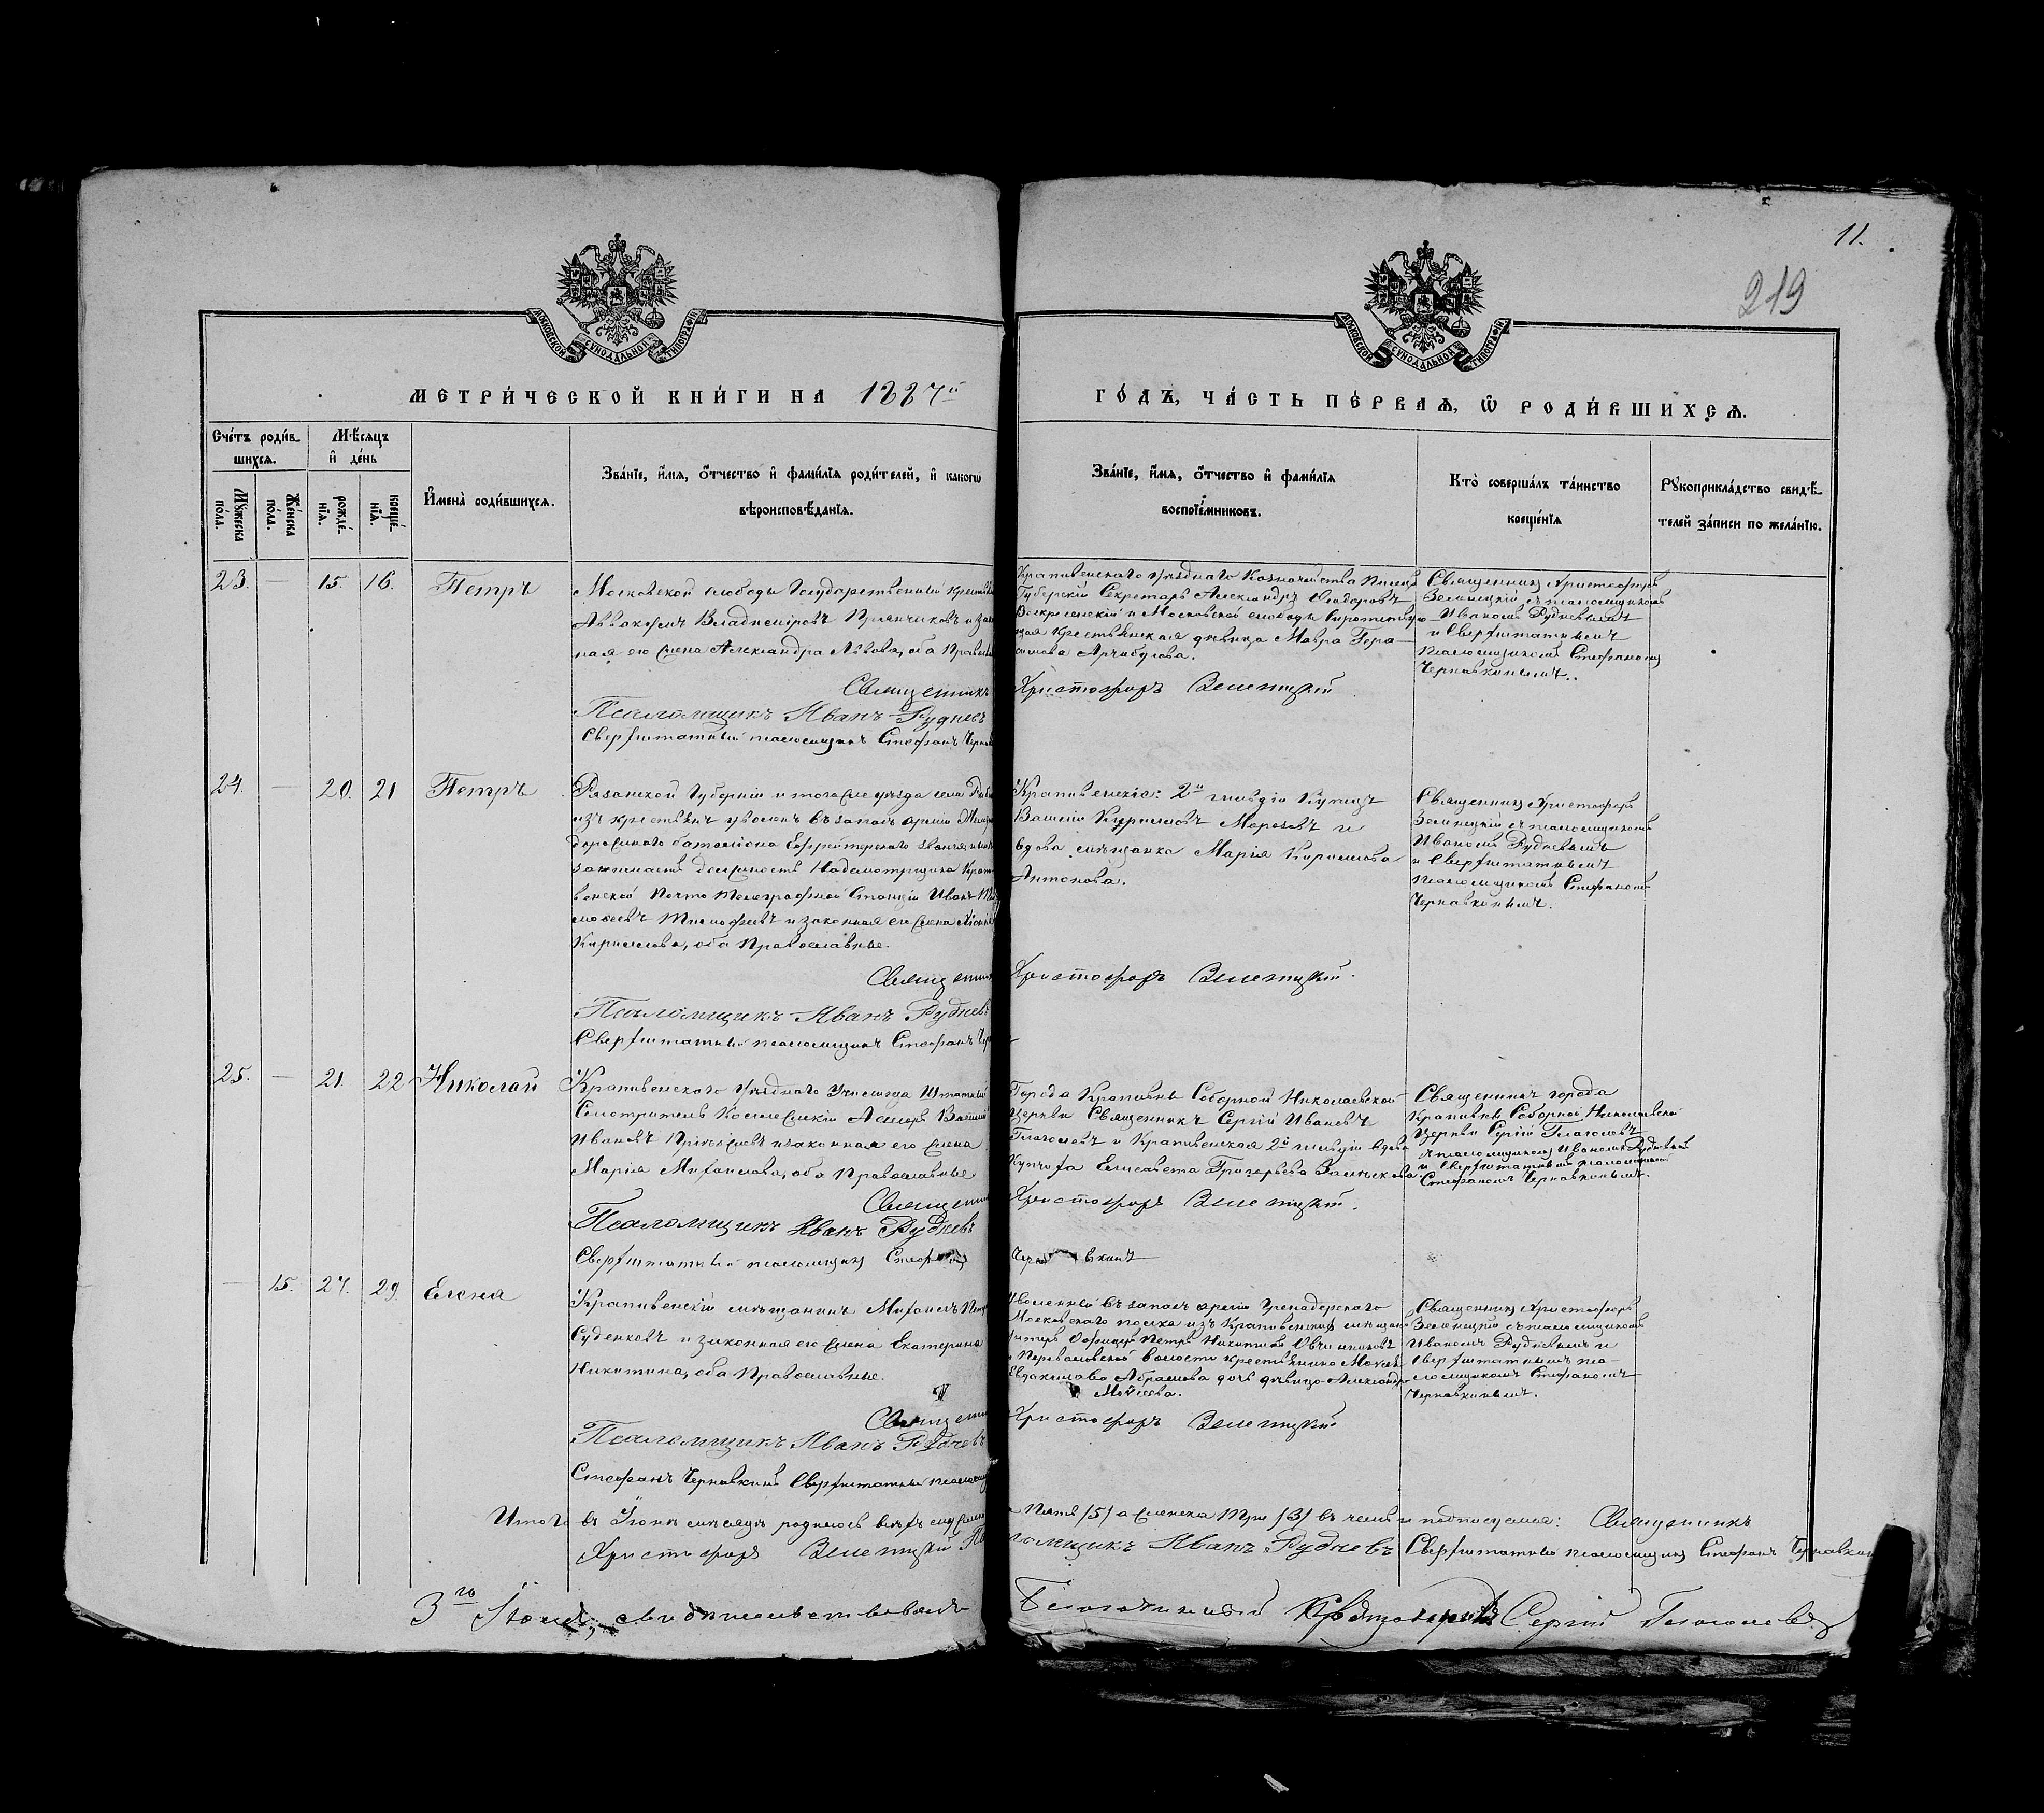 11.
219
МОСКОВСКОЙ СУНОДАЛЬНОЙ ТИПОГРАФІИ
МОСКОВСКОЙ СУНОДАЛЬНОЙ ТИПОГРАФІИ
МЕТРИ́ЧЕСКОЙ КНИ́ГИ НА 1887й
ГО́ДЪ, ЧА́СТЬ ПЕ́РВАѦ, Ѡ РОДИ́ВШИХСѦ.
Сче́тъ роди́в-
шихсѧ.
Мꙋжеска по́ла.
Же́нска по́ла.
Мѣ́сѧцъ и де́нь
рожде́-нїѧ.
креще́-нїѧ.
И҆мена̀ роди́вшихсѧ.
Зва́нїе, и҆́мѧ, ѻ҆́тчество и҆ фами́лїѧ роди́телей, и҆ како́гѡ
вѣроисповѣ́данїѧ.
Зва́нїе, и҆́мѧ, ѻ҆́тчество и҆ фами́лїѧ
воспрїе́мниковъ.
Кто̀ соверша́лъ та́инство
креще́нїѧ
Рꙋкоприкла́дство свидѣ́-
телей за́писи по жела́нїю.
23. — 15 16. Петръ
Московской слободы Государственный
Аввакумъ Владиміровъ
ная его жена Александра Львова, оба
Священникъ
Псаломщикъ Иванъ Рудневъ
Сверхштатный псаломщикъ Стефанъ
Крапивенскаго Уѣзднаго Казначейства
Губернскій Секретарь Александръ Ѳеодоровъ
Воскресенскій и Московской слободы
крестьянская дѣвица Мавра Гера-
симова
Христофоръ Зеленецкій
Священникъ Христофоръ
Зеленецкій съ псаломщикомъ
Иваномъ Рудневымъ
и Сверхштатнымъ
псаломщикомъ Стефаномъ
Чернавкинымъ.
24. — 20. 21 Петръ
Рязанской Губерніи и тогоже уѣзда села
изъ крестьянъ уволенъ въ запасъ арміи
баталіона Ефрейторскаго званія
занимаетъ должность Надсмотрщика
венской Почто Телеграфной Станціи Иванъ
Тимофеевъ и законная его жена
Кириллова, оба Православные.
Псаломщикъ Иванъ Рудневъ
Сверхштатный псаломщикъ Стефанъ
Крапивенскіе: 2й гильдіи Купецъ
Василій Кирилловъ Морозовъ и
вдова мѣщанка Марія Кириллова
Антонова.
Христофоръ Зеленецкій
Священникъ Христофоръ
Зеленецкій съ псаломщикомъ
Иваномъ Рудневымъ
и Сверхштатнымъ
псаломщикомъ Стефаномъ
Чернавкинымъ.
25. — 21. 22 Николай
Крапивенскаго Уѣзднаго Училища Штатный
Смотритель Коллежскій Ассесоръ Василій
Ивановъ и законная его жена
Марія Михаилова, оба Православные
Псаломщикъ Иванъ Рудневъ
Сверхштатный псаломщикъ
Города Крапивны Соборной Николаевской
Церкви Священникъ Сергій Ивановъ
Глаголевъ и Крапивенская 2й гильдіи вдова
Купчиха Елисавета Григорьева
Христофоръ Зеленецкій.
Священникъ города
Крапивны Соборной Николаевской
Церкви Сергій Глаголевъ
съ псаломщикомъ Иваномъ Рудневымъ
и Сверхштатнымъ псаломщикомъ
Стефаномъ Чернавкинымъ.
— 15. 27. 29. Елена
Крапивенскій мѣщанинъ Михаилъ
Суденковъ и законная его жена Екатерина
Никитина, оба Православные.
Псаломщикъ Иванъ Рудневъ
Стефанъ Чернавкинъ Сверхштатный
Уволенный въ запасъ арміи Гренадерскаго
Московскаго полка изъ Крапивенскихъ мѣщанъ
Унтеръ Офицеръ Петръ Никитинъ Овчинниковъ
волости крестьянина
Евдокимова Абрамова дочь дѣвица Александра
Моисеева.
Христофоръ Зеленецкій
Священникъ Христофоръ
Зеленецкій съ псаломщикомъ
Иваномъ Рудневымъ и
Сверхштатнымъ пса-
ломщикомъ Стефаномъ
Чернавкинымъ.
Итого въ Іюнѣ мѣсяцѣ родилось
Пять /5/ а женска Три /3/ въ чемъ и подписуемся: Священникъ
Христофоръ Зеленецкій
Псаломщикъ Иванъ Рудневъ Сверхштатный псаломщикъ Стефанъ Чернавкинъ
3го Іюля, свидѣтельствовалъ
Благочинный Сергій Глаголевъ